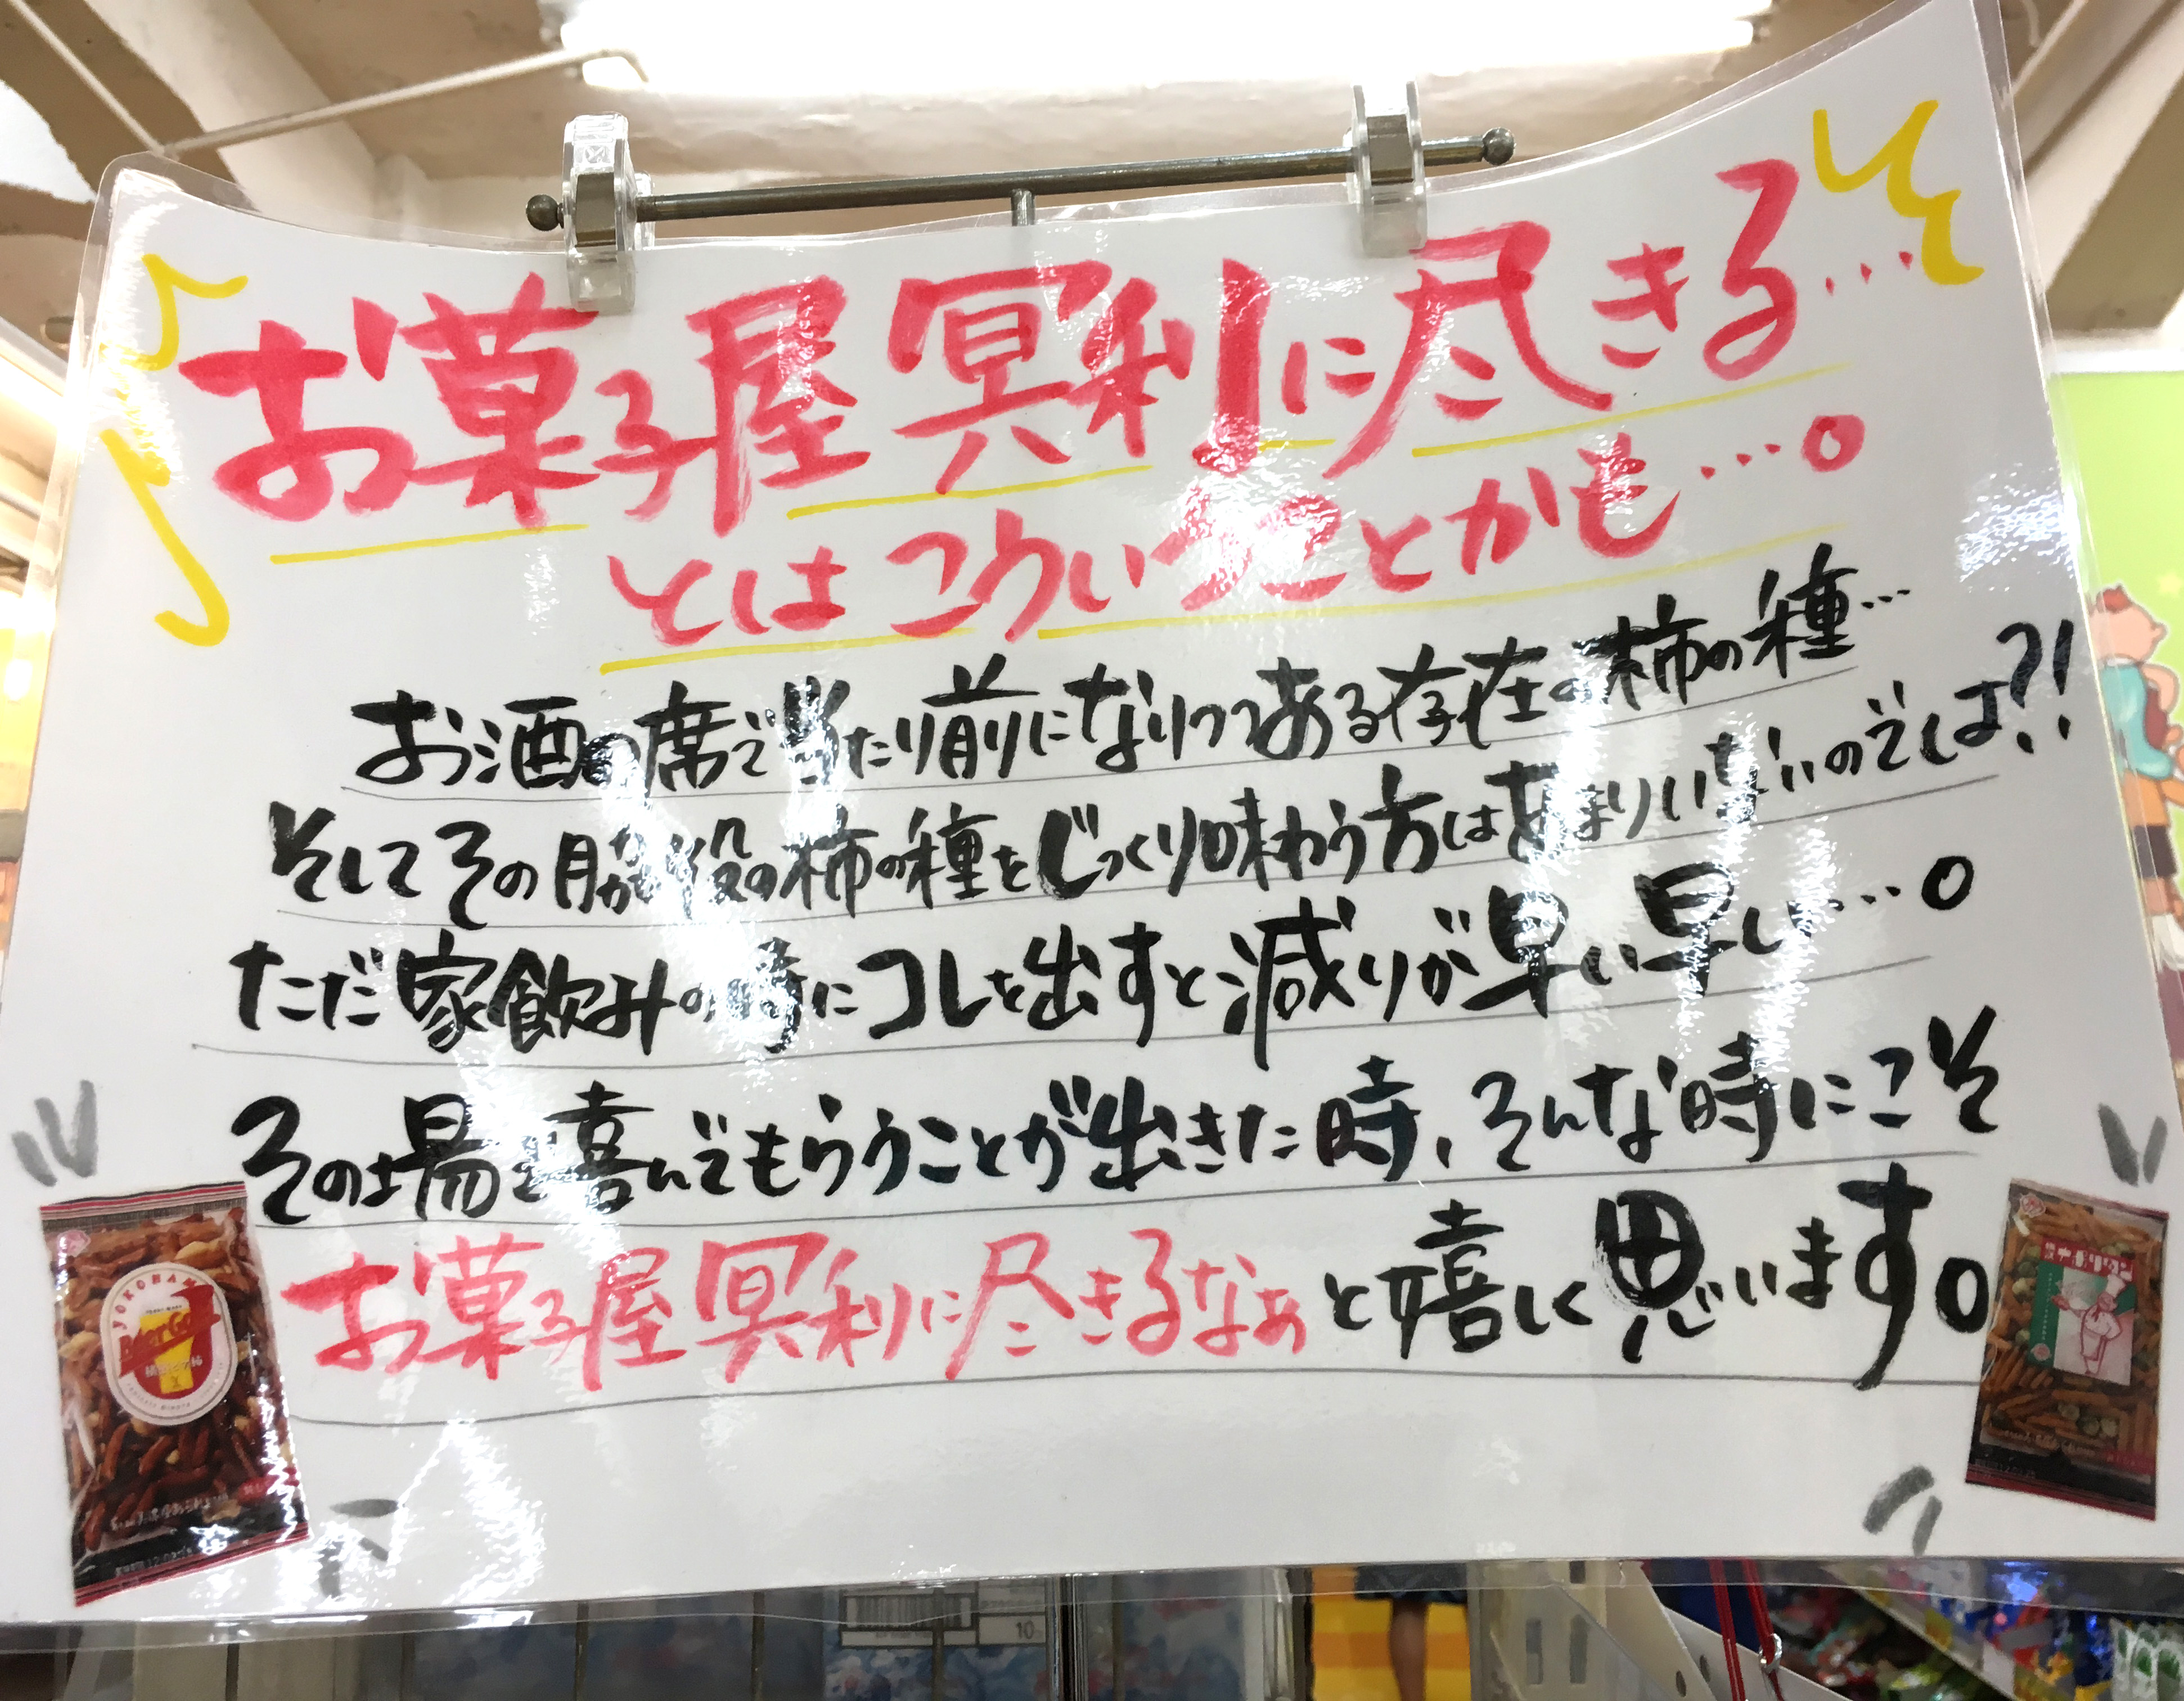 お菓子屋冥利に尽きる…
とはこういうことかも…。
お酒の席で当たり前になりつつある存在の柿の種…
そしてその脇役の柿の種をじっくり味わう方はあまりいないのでは?!
ただ家飲みの時にコレを出すと減りが早い早い…。
その場を喜んでもらうことが出きた時、そんな時にこそ
お菓子屋冥利に尽きるなぁと嬉しく思います。
YOKOHAMA
ナポリタン
10